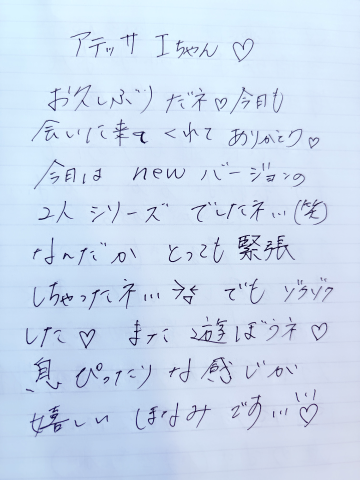 アテッサ Iちゃん ♡
お久しぶりだネ♡今日も
会いに来てくれてありがとウ♡
今日は newバージョンの
2人シリーズ でしたネ…(笑)
なんだか とっても 緊張
しちゃったネ… でも ゾクゾク
した♡ また 遊ぼうネ♡
息 ぴったりな 感じが
嬉しい ほなみ です…♡